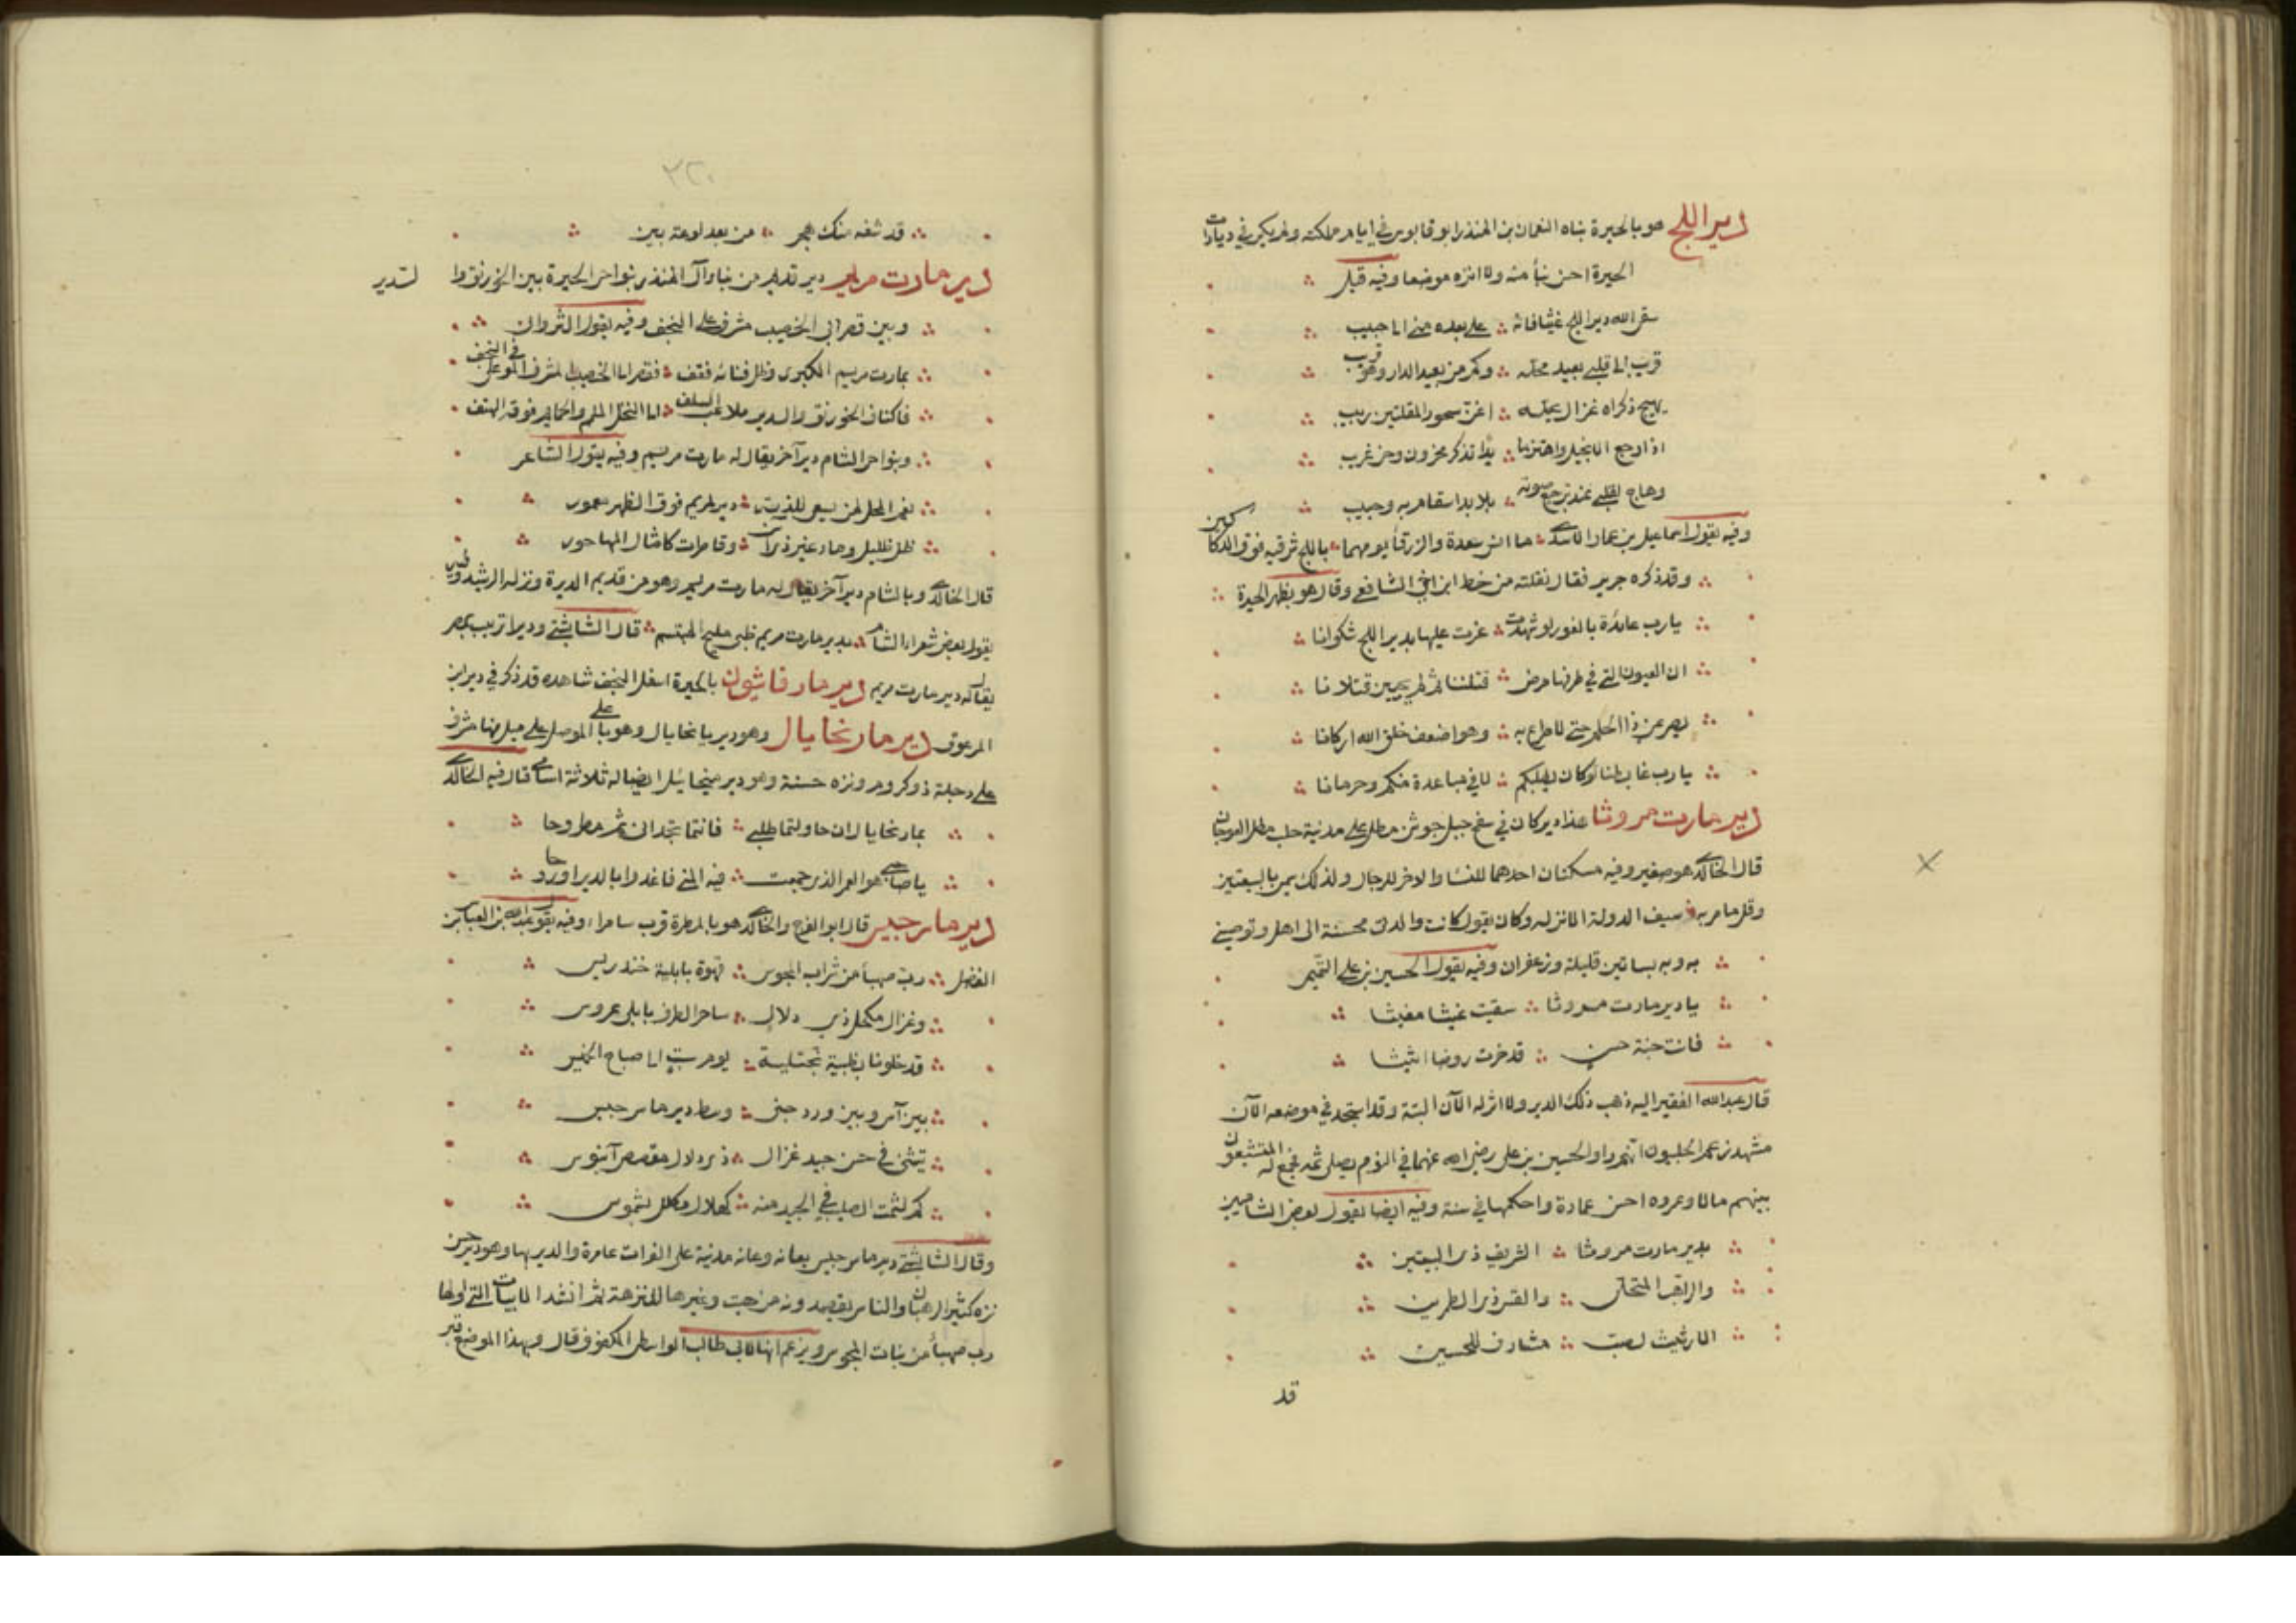 دير اللج هو بالحيرة بناه النعمان بن المنذر ابو قابوس في ايام مملكته ولم يكن في ديارات
الحيرة احسن بنأ منه ولا انزه موضعا وفيه قيل
سقى الله دير اللج غيثا فانه على بعده مني الى حبيب
قريب الى قلبي بعيد محله وكم من بعيد الدار وهو قريب
يهيج ذكراه غزال يحله اغن سحور المقلتين ربيب
اذا رجع الانجيل واهتز مائدا تذكر محزون وحن غريب
وهاج لقلبي عند ترجيع صوته بلابل اسقام به ووجيب
وفيه يقول اسماعيل بن عمار الاسدي ما انس سعدة والزرقأ يومهما باللج شرقيه فوق الدكاكين
وقد ذكره جرير فقال نقلته من خط ابن اخي الشافعي وقال هو بظهر الحيرة
يا رب عائذة بالغور لو شهدت عزت عليها بدير اللج شكوانا
ان العيون التي في طرفها مرض قتلننا ثم لم يحيين قتلانا
يصرعن ذا الحلم حتى لا حراك به وهن اضعف خلق الله اركانا
يا رب غابطنا لو كان يطلبكم لاقى مباعدة منكم وحرمانا
دير مارت مروثا هذا دير كان في سفح جبل جوشن مطل على مدينة حلب مطل العوجان
قال الخالدي هو صغير وفيه مسكنان احدهما للنسا والاخر للرجال ولذلك سمي بالبيعتين
وقل ما مر به سيف الدولة الا نزله وكان يقول كانت والدتي محسنة الى اهله وتوصيني
به وبه بساتين قليلة وزعفران وفيه يقول الحسين بن علي التميمي
يا دير مارت مروثا سقيت غيثا مغيثا
فانت جنة حسن قد حزت روضا اثيثا
قال عبد الله الفقير اليه ذهب ذلك الدير ولا اثر له الآن البتة وقد استجد في موضعه الآن
مشهد زعم الحلبيون انهم راوا الحسين بن علي رضي الله عنهما في النوم يصلي ثمه فجمع له المتشيعون
بينهم مالا وعمروه احسن عمارة واحكمها في سنة وفيه ايضا يقول بعض الشاميين
بدير مارت مروثا الشريف ذي البيعتين
والراهب المتحلى والقس ذي الطمرين
الا رثيت لصب مشارف للحسين
قد
٣٢٠
قد شفه منك هجر من بعد لوعة بين
دير مارت مريم دير قديم من بنا وآل المنذر بنواحي الحيرة بين الخورنق وا لسدير
وبين قصر ابي الخصيب مشرف على النجف وفيه يقول الثرواني
بمارت مريم الكبرى وظل فنائها فقف فقصر ابي الخصيب المشرف الموفي على النجف
فاكناف الخورنق والسدير ملاعب السلف الى النخل الملمم والحمائم فوقه الهتف
وبنواحي الشام دير آخر يقال له مارت مريم وفيه يقول الشاعر
نعم المحل لمن يسعى للذته دير لمريم فوق الظهر معمور
ظل ظليل وماء غير ذي آسن وقاصرات كامثال المها حور
قال الخالدي وبالشام دير آخر يقال له مارت مريم وهو من قديم الديرة ونزله الرشيد وفيه
يقول بعض شعراء الشام بدير مارت مريم ظبي مليح المبتسم قال الشابشتي ودير اتريب بمصر
يقال له دير مارت مريم دير مار فاثيون بالحيرة اسفل النجف شاهده قد ذكر في دير ابن
المزعوق دير مار نخايال وهو دير بانخايال وهو با على الموصل على ميل منها مشرف
على دجلة ذو كروم ونزه حسنة وهو دير ميخائيل ايضا له ثلاثة اسامي قال فيه الخالدي
بمار نخايال ان حاولتما طلبي فانتما تجداني ثم مطروحا
يا صاحبي هو العمر الذي جمعت فيه المنى فاغدوا بالدير او روحا
دير مار جبس قال ابو الفرج والخالدي هو بالمطرة قرب سامراء وفيه يقول عبد الله بن العباس بن
الفضل رب صهبأ من شراب المجوس قهوة بابلية خندريس
وغزال مكحل ذي دلال ساحر الطرف بابلي عروس
قد خلونا بظبية نجتليه يوم سبت الى صباح الخميس
بين آس وبين ورد جني وسط دير مار جبس
يتثنى في حسن جيد غزال ذي دلال مقصص آبنوس
كم لثمت الصليب في الجيد منه كهلال مكلل بشموس
وقال الشابشتي دير مار جبس بعانه وعانه مدينة على الفرات عامرة والدير بها وهو دير حسن
نزه كثير الرهبان والناس يقصدونه من هيت وغيرها للنزهة ثم انشد الابيات التي اولها
رب صهبأ من بنات المجوس وزعم انها لابي طالب الواسطي المكفوف قال وبهذا الموضع قبر